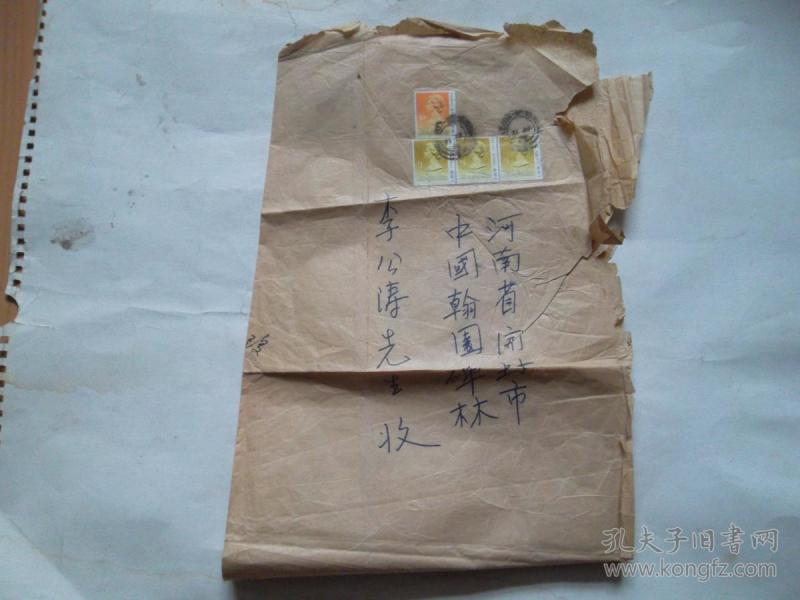 河南省開封市
中國翰園碑林
李公涛先生 收
孔夫子旧书网
www.kongfz.com